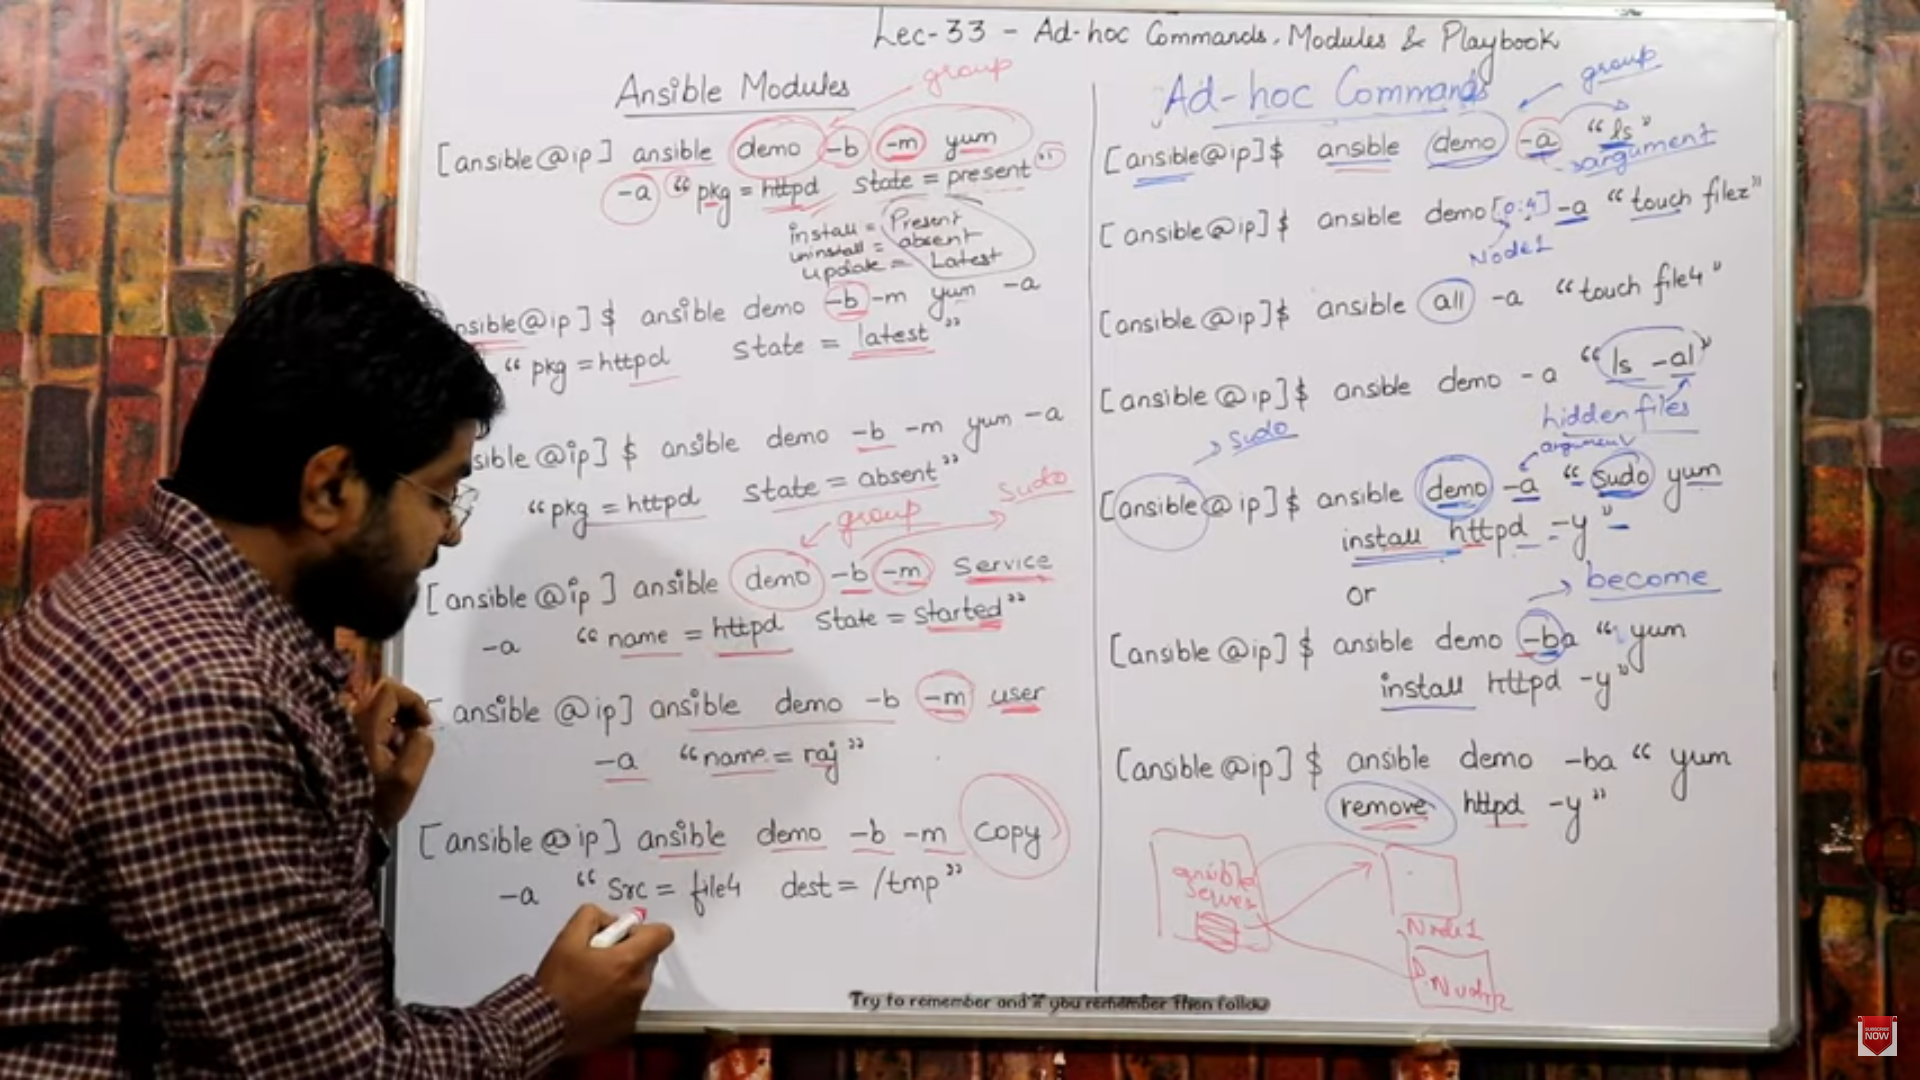 Lec-33 - Ad-hoc Commands, Modules & Playbook
Ansible Modules
group
[ansible@ip] ansible demo -b -m yum
-a “pkg = httpd state = present”
install = Present
uninstall = absent
update = Latest
nsible@ip]$ ansible demo -b -m yum -a
“pkg = httpd state = latest”
sible@ip]$ ansible demo -b -m yum -a
“pkg = httpd state = absent”
group
sudo
[ansible@ip] ansible demo -b -m Service
-a “name = httpd State = started”
[ansible@ip] ansible demo -b -m user
-a “name = raj”
[ansible@ip] ansible demo -b -m Copy
-a “Src = file4 dest = /tmp”
Ad-hoc Commands
group
[ansible@ip]$ ansible demo -a “ls”
argument
[ansible@ip]$ ansible demo[0:4] -a “touch filez”
Node1
[ansible@ip]$ ansible all -a “touch file4”
[ansible@ip]$ ansible demo -a “ls -al”
hidden files
sudo
argument
[ansible@ip]$ ansible demo -a “sudo yum
install httpd -y”
or
become
[ansible@ip]$ ansible demo -ba “yum
install httpd -y”
[ansible@ip]$ ansible demo -ba “yum
remove httpd -y”
ansible
server
Node1
Try to remember and if you remember Then follow
SUBSCRIBE
NOW